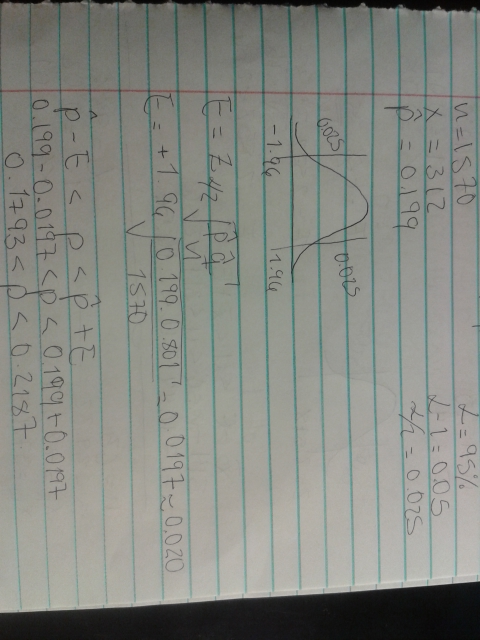 n=1570
x̂ = 312
p̂ = 0.199
α = 95%
α-1 = 0.05
α/2 = 0.025
0.025
0.025
-1.96
1.96
E = Z α/2 √p̂q̂/n
E = +1.96 √0.199·0.801/1570 = 0.0197 ≈ 0.020
p̂ - E < p < p̂ + E
0.199-0.0197 < p < 0.199+0.0197
0.1793 < p < 0.2187